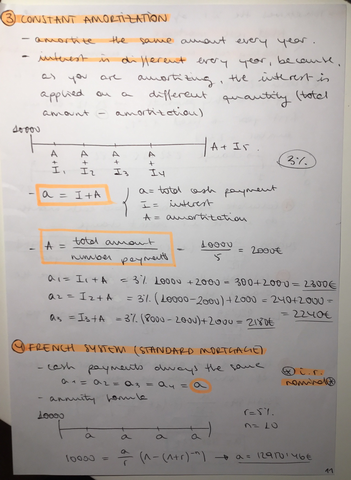 ③ CONSTANT AMORTIZATION
- amortize the same amount every year.
- interest is different every year, because,
as you are amortizing, the interest is
applied on a different quantity (total
amount - amortization)
10000
A A A A A + I5
+ + + +
I1 I2 I3 I4
3%
- a = I + A
a = total cash payment
I = interest
A = amortization
- A = total amount / number payments - 10000 / 5 = 2000€
a1 = I1 + A = 3% 10000 + 2000 = 300 + 2000 = 2300€
a2 = I2 + A = 3% (10000 - 2000) + 2000 = 240 + 2000 =
= 2240€
a3 = I3 + A = 3% (8000 - 2000) + 2000 = 2180€
④ FRENCH SYSTEM (STANDARD MORTGAGE)
- cash payments always the same
a1 = a2 = a3 = a4 = a
i.r.
nominal
- annuity formula
10000
a a a a
r = 5%
n = 10
10000 = a/r (1 - (1+r)^-n) → a =